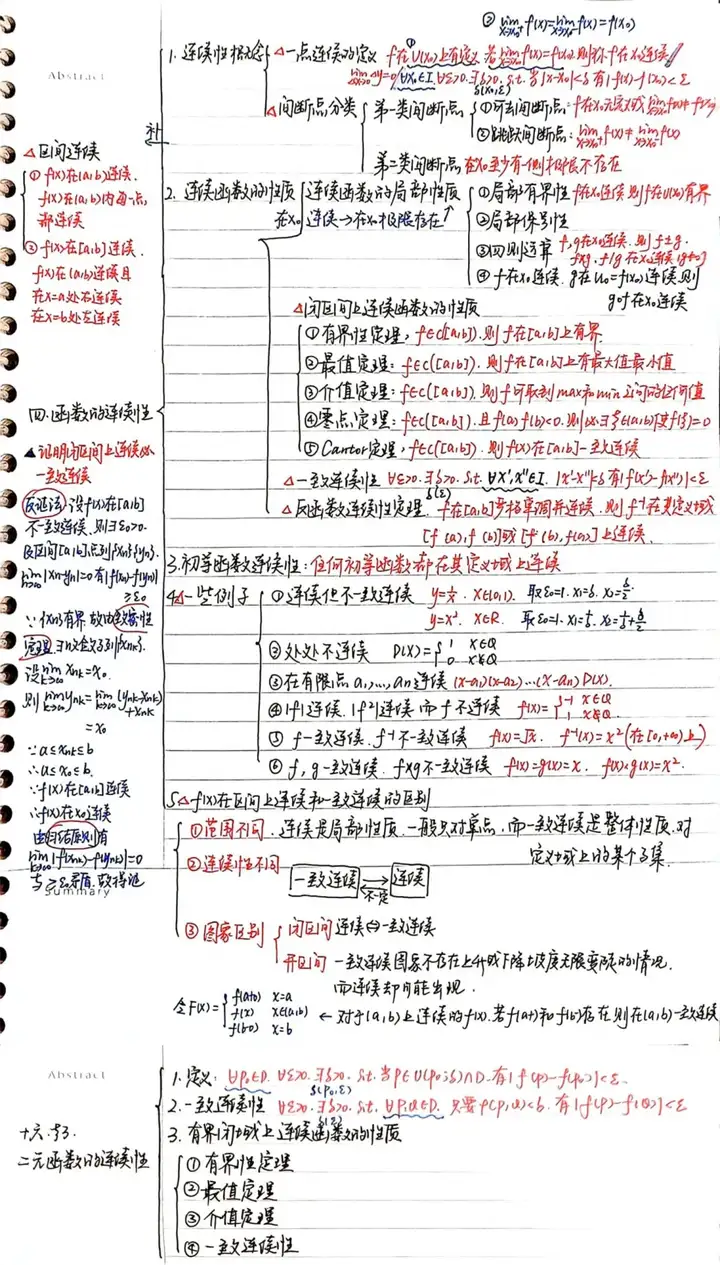 ② lim x→x₀⁺ f(x)=lim x→x₀⁻ f(x)=f(x₀)
Abstract
1. 连续性概念
△一点连续的定义 f在U(x₀)上有定义 若lim x→x₀ f(x)=f(x₀) 则称f在x₀连续
lim Δx→0 Δy=0 ∀x₀∈I. ∀ε>0. ∃δ>0. s.t. 当|x-x₀|<δ 有|f(x)-f(x₀)|<ε
δ(x₀,ε)
△间断点分类
第一类间断点
①可去间断点: f在x₀无定义或
②跳跃间断点: lim x→x₀⁺ f(x)≠lim x→x₀⁻ f(x)
第二类间断点 在x₀至少有一侧极限不存在
补
△区间连续
① f(x)在(a,b)连续.
f(x)在(a,b)内每一点,
都连续
② f(x)在[a,b]连续.
f(x)在(a,b)连续且
在x=a处右连续
在x=b处左连续
2. 连续函数的性质
连续函数的局部性质
在x₀连续→在x₀极限存在↑
①局部有界性 f在x₀连续 则f在U(x₀)有界
②局部保号性
③四则运算 f,g在x₀连续. 则f±g.
f×g. f/g在x₀连续(g≠0)
④ f在x₀连续. g在u₀=f(x₀)连续则
g∘f在x₀连续
△闭区间上连续函数的性质
①有界性定理, f∈C([a,b]). 则f在[a,b]上有界
②最值定理: f∈C([a,b]). 则f在[a,b]上有最大值最小值
③介值定理: f∈C([a,b]). 则f可取到max和min之间的任何值
④零点定理: f∈C([a,b]). 且f(a)f(b)<0. 则必∃ξ∈(a,b)使f(ξ)=0
⑤Cantor定理, f∈C([a,b]). 则f(x)在[a,b]一致连续
△一致连续性 ∀ε>0. ∃δ>0. s.t. ∀x',x''∈I. |x'-x''|<δ 有|f(x')-f(x'')|<ε
δ(ε)
△反函数连续性定理. f在[a,b]严格单调并连续. 则f⁻¹在其定义域
[f(a),f(b)]或[f(b),f(a)]上连续.
四.函数的连续性
▲证明闭区间上连续必
一致连续
反证法:设f(x)在[a,b]
不一致连续.则∃ε₀>0.
及区间[a,b]点列{xn}{yn}.
lim n→∞ |xn-yn|=0有|f(xn)-f(yn)|
≥ε₀
∵{xn}有界.故由致密性
定理 ∃收敛子列{xnk}.
设lim k→∞ xnk=x₀.
则lim k→∞ ynk=lim k→∞ (ynk-xnk)
+xnk
=x₀
∵a≤xnk≤b
∴a≤x₀≤b.
∵f(x)在[a,b]连续
∴f(x)在x₀连续
由归结原则有
lim k→∞ |f(xnk)-f(ynk)|=0
与≥ε₀矛盾.故得证
summary
3.初等函数连续性:任何初等函数都在其定义域上连续
4△一些例子
①连续但不一致连续 y=1/x. x∈(0,1). 取ε₀=1. x₁=δ. x₂=δ/2.
y=x². x∈R. 取ε₀=1. x₁=1/δ. x₂=1/δ+δ/2
②处处不连续 D(x)={1 x∈Q
0 x∉Q
③在有限点a₁,…,an连续 (x-a₁)(x-a₂)…(x-an)D(x).
④|f|连续.|f²|连续.而f不连续 f(x)={-1 x∈Q
1 x∉Q.
⑤ f一致连续.f⁻¹不一致连续 f(x)=√x. f⁻¹(x)=x²(在[0,+∞)上)
⑥ f,g一致连续. f×g不一致连续 f(x)=g(x)=x. f(x)·g(x)=x².
5△f(x)在区间上连续和一致连续的区别
①范围不同. 连续是局部性质.一般只对单点.而一致连续是整体性质.对
定义域上的某个子集.
②连续性不同
一致连续 ⇄ 连续
不一定
③图象区别
闭区间 连续⇔一致连续
开区间 一致连续图象不存在上升或下降坡度无限变陡的情况.
而连续却可能出现.
令F(x)={f(a+0) x=a
f(x) x∈(a,b)
f(b-0) x=b
←对于(a,b)上连续的f(x).若f(a+)和f(b-)存在则在(a,b)一致连续
Abstract
1.定义. ∀P₀∈D. ∀ε>0. ∃δ>0. s.t. 当P∈U(P₀;δ)∩D.有|f(P)-f(P₀)|<ε.
δ(P₀,ε)
2.一致连续性 ∀ε>0. ∃δ>0. s.t. ∀P,Q∈D. 只要ρ(P,Q)<δ. 有|f(P)-f(Q)|<ε
δ(ε)
3.有界闭域上连续函数的性质
十六.§3.
二元函数的连续性
①有界性定理
②最值定理
③介值定理
④一致连续性